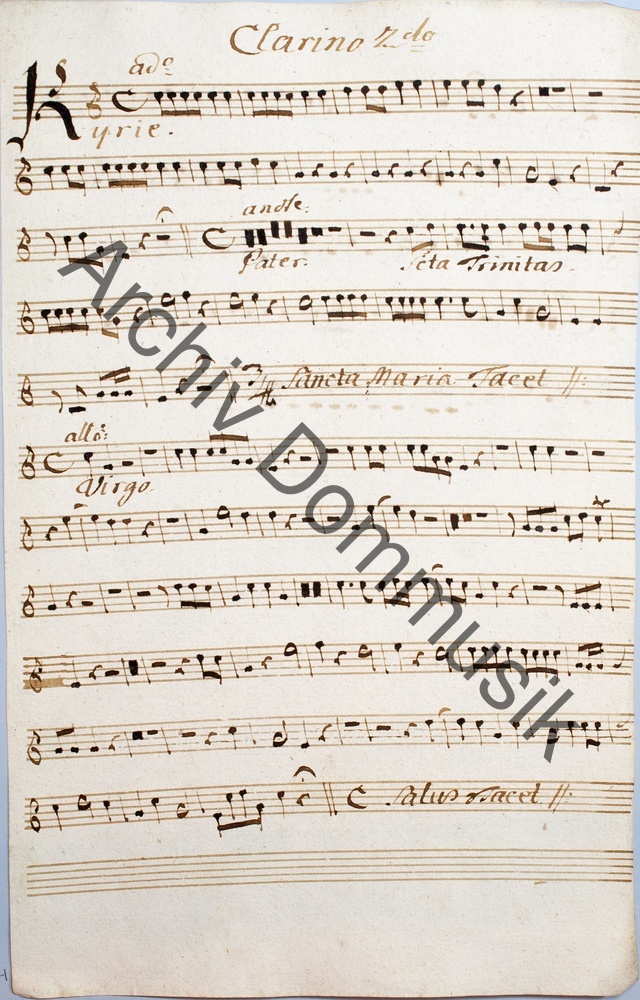 Clarino 2do
ado
Kyrie.
andte:
Pater. Scta Trinitas.
3/4 Sancta Maria Tacet
allo:
Virgo.
C Salus Tacet
Archiv Dommusik